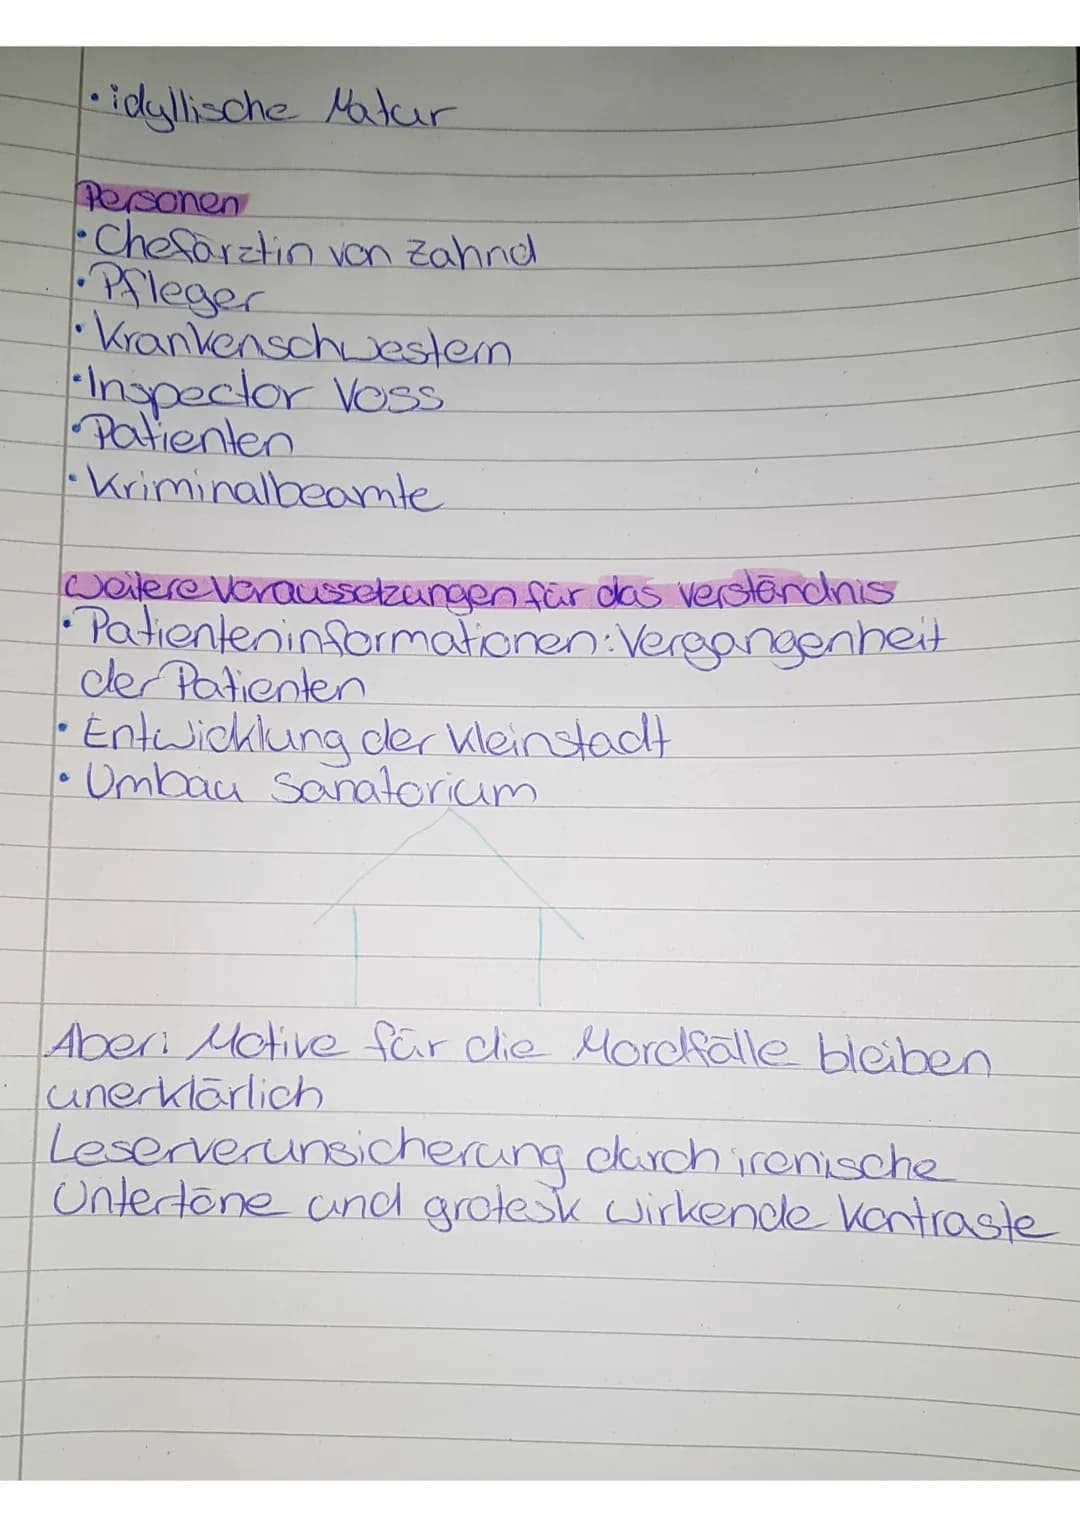 • idyllische Natur
Personen
• Chefärztin von Zahnd
• Pfleger
• Krankenschwestern
• Inspector Voss
• Patienten
• Kriminalbeamte
Weitere Voraussetzungen für das verständnis
• Patienteninformationen: Vergangenheit
der Patienten
• Entwicklung der Kleinstadt
• Umbau Sanatorium
Aber: Motive für die Mordfälle bleiben
unerklärlich
Leserverunsicherung durch ironische
Untertöne und grotesk wirkende Kontraste